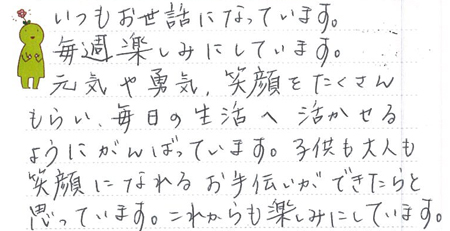 いつもお世話になっています。
毎週楽しみにしています。
元気や勇気、笑顔をたくさん
もらい、毎日の生活へ活かせる
ようにがんばっています。子供も大人も
笑顔になれるお手伝いができたらと
思っています。これからも楽しみにしています。